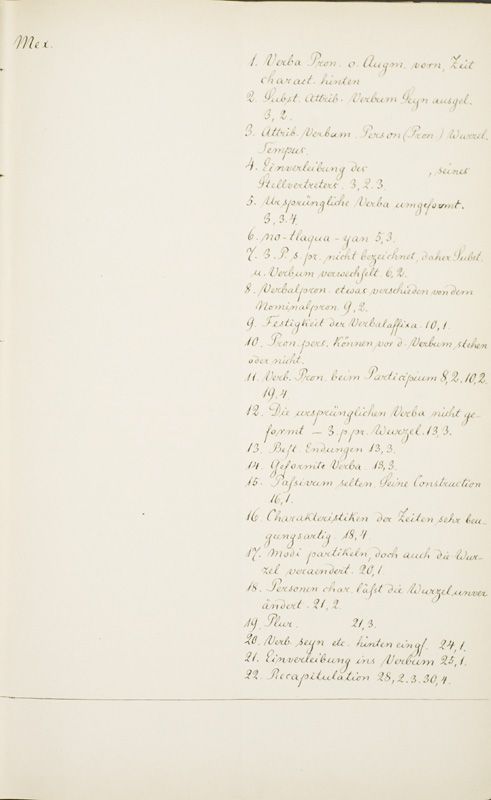 Mex.
1. Verba Pron. o. Augm. vorn, Zeit
charact. hinten
2. Subst. Attrib. Verbum Seyn ausgel.
3, 2.
3. Attrib. Verbum. Person (Pron.) Wurzel.
Tempus.
4. Einverleibung des , seines
Stellvertreters. 3, 2. 3.
5. Ursprüngliche Verba umgeformt.
3, 3.4.
6. no-tlaqua-yan 5, 3.
7. 3. P. s. pr. nicht bezeichnet, daher Subst.
u. Verbum verwechselt. 6, 2.
8. Verbalpron. etwas verschieden von dem
Nominalpron. 9, 2.
9. Festigkeit der Verbalaffixa. 10, 1.
10. Pron. pers. können vor d. Verbum stehen
oder nicht.
11. Verb. Pron. beim Participium 8, 2. 10, 2.
19, 4.
12. Die ursprünglichen Verba nicht ge-
formt — 3. p. pr. Wurzel. 13, 3.
13. Best. Endungen 13, 3.
14. Geformte Verba. 13, 3.
15. Passivum selten. Seine Construction
16, 1.
16. Charakteristiken der Zeiten sehr beu-
gungsartig. 18, 4.
17. Modi partikeln, doch auch die Wur-
zel veraendert. 20, 1.
18. Personen char. läßt die Wurzel unver
ändert. 21, 2.
19. Plur. 21, 3.
20. Verb. seyn etc. hinten eingf. 24, 1.
21. Einverleibung ins Verbum 25, 1.
22. Recapitulation 28, 2. 3. 30, 4.